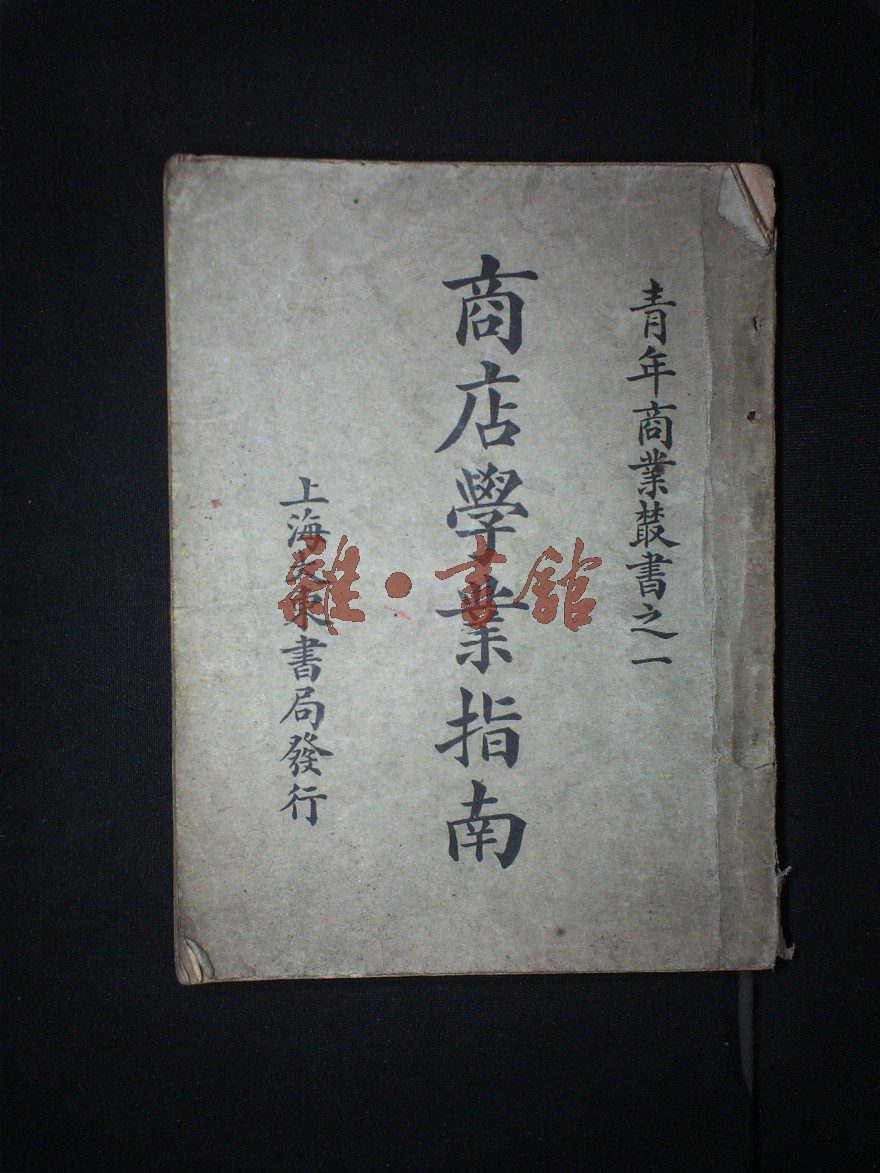 青年商業叢書之一
商店學業指南
上海大東書局發行
雜·書館